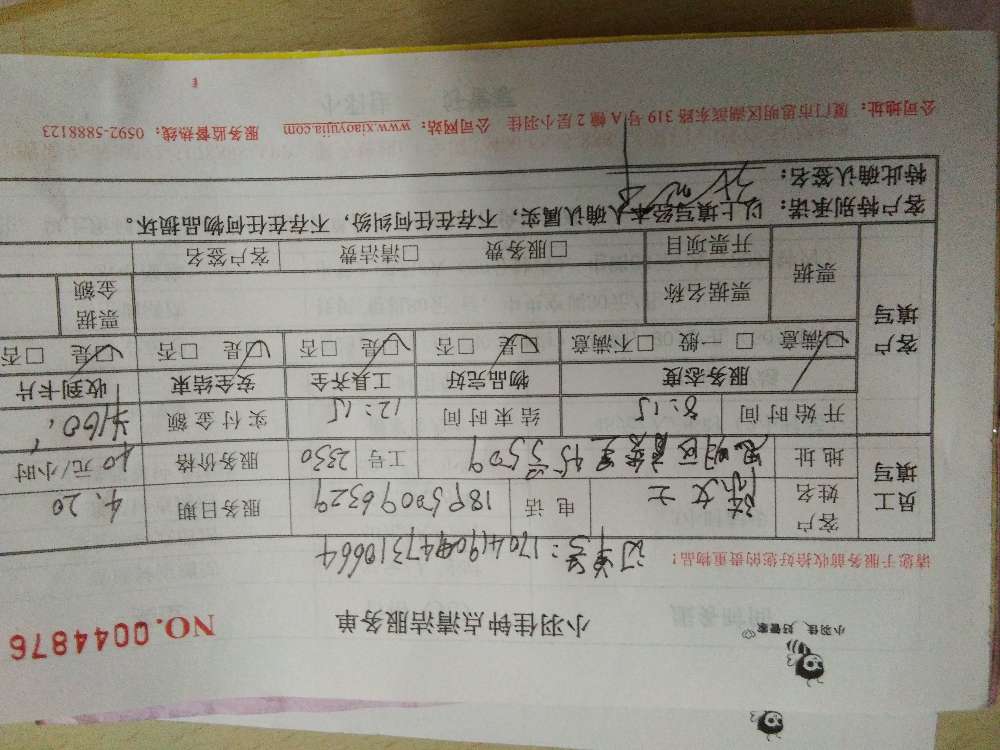 小羽佳，好管家
小羽佳钟点清洁服务单
NO.0044876
请您于服务前收拾好您的贵重物品！
订单号：
员工填写
客户姓名 女士 电话 18950096329 服务日期 4.20
地址 思明区 45号509 工号 2830 服务价格 40元/小时
开始时间 8:15 结束时间 12:15 实付金额 ¥160.
客户填写
服务态度 物品完好 工具齐全 安全结束 收到卡片
□满意 □一般 □不满意 □是 □否 □是 □否 □是 □否 □是 □否
票据 票据名称 票据金额
开票项目 □服务费 □清洁费 客户签名
客户特别承诺：以上填写经本人确认属实，不存在任何纠纷，不存在任何物品损坏。
特此确认签名：
公司地址：厦门市思明区湖滨东路 319 号 A 幢 2 层小羽佳 公司网站：www.xiaoyujia.com 服务监督热线：0592-5888123